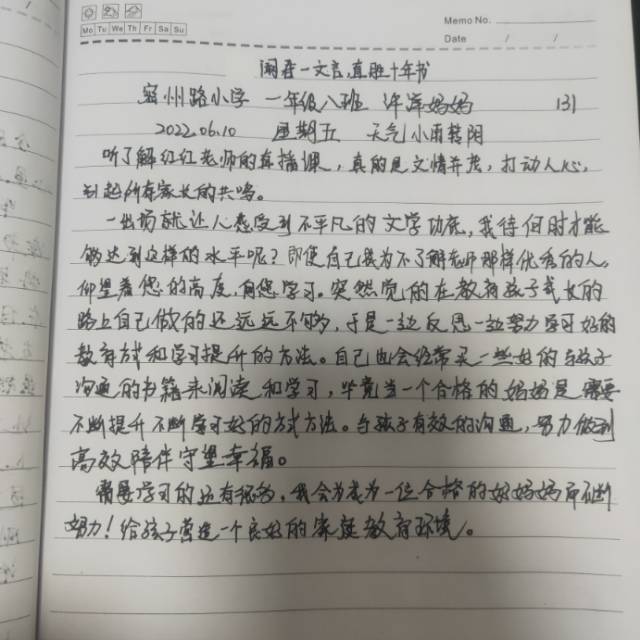 Memo No.
Mo Tu We Th Fr Sa Su
Date / /
闻君一文言,直胜十年书
密州路小学 一年级八班 许洋妈妈 131
2022.06.10 星期五 天气小雨转阴
听了解红红老师的直播课,真的是文情并茂,打动人心,
引起所有家长的共鸣。
一出场就让人感受到不平凡的文学功底,我待何时才能
够达到这样的水平呢?即使自己成为不了解老师那样优秀的人,
仰望着您的高度,向您学习。突然觉的在教育孩子成长的
路上自己做的还远远不够,于是一边反思一边努力学习好的
教育方式和学习提升的方法。自己也会经常买一些好的与孩子
沟通的书籍来阅读和学习,毕竟当一个合格的妈妈是需要
不断提升不断学习好的方式方法。与孩子有效的沟通,努力做到
高效陪伴守望幸福。
需要学习的还有很多,我会为成为一位合格的好妈妈而不断
努力!给孩子营造一个良好的家庭教育环境。